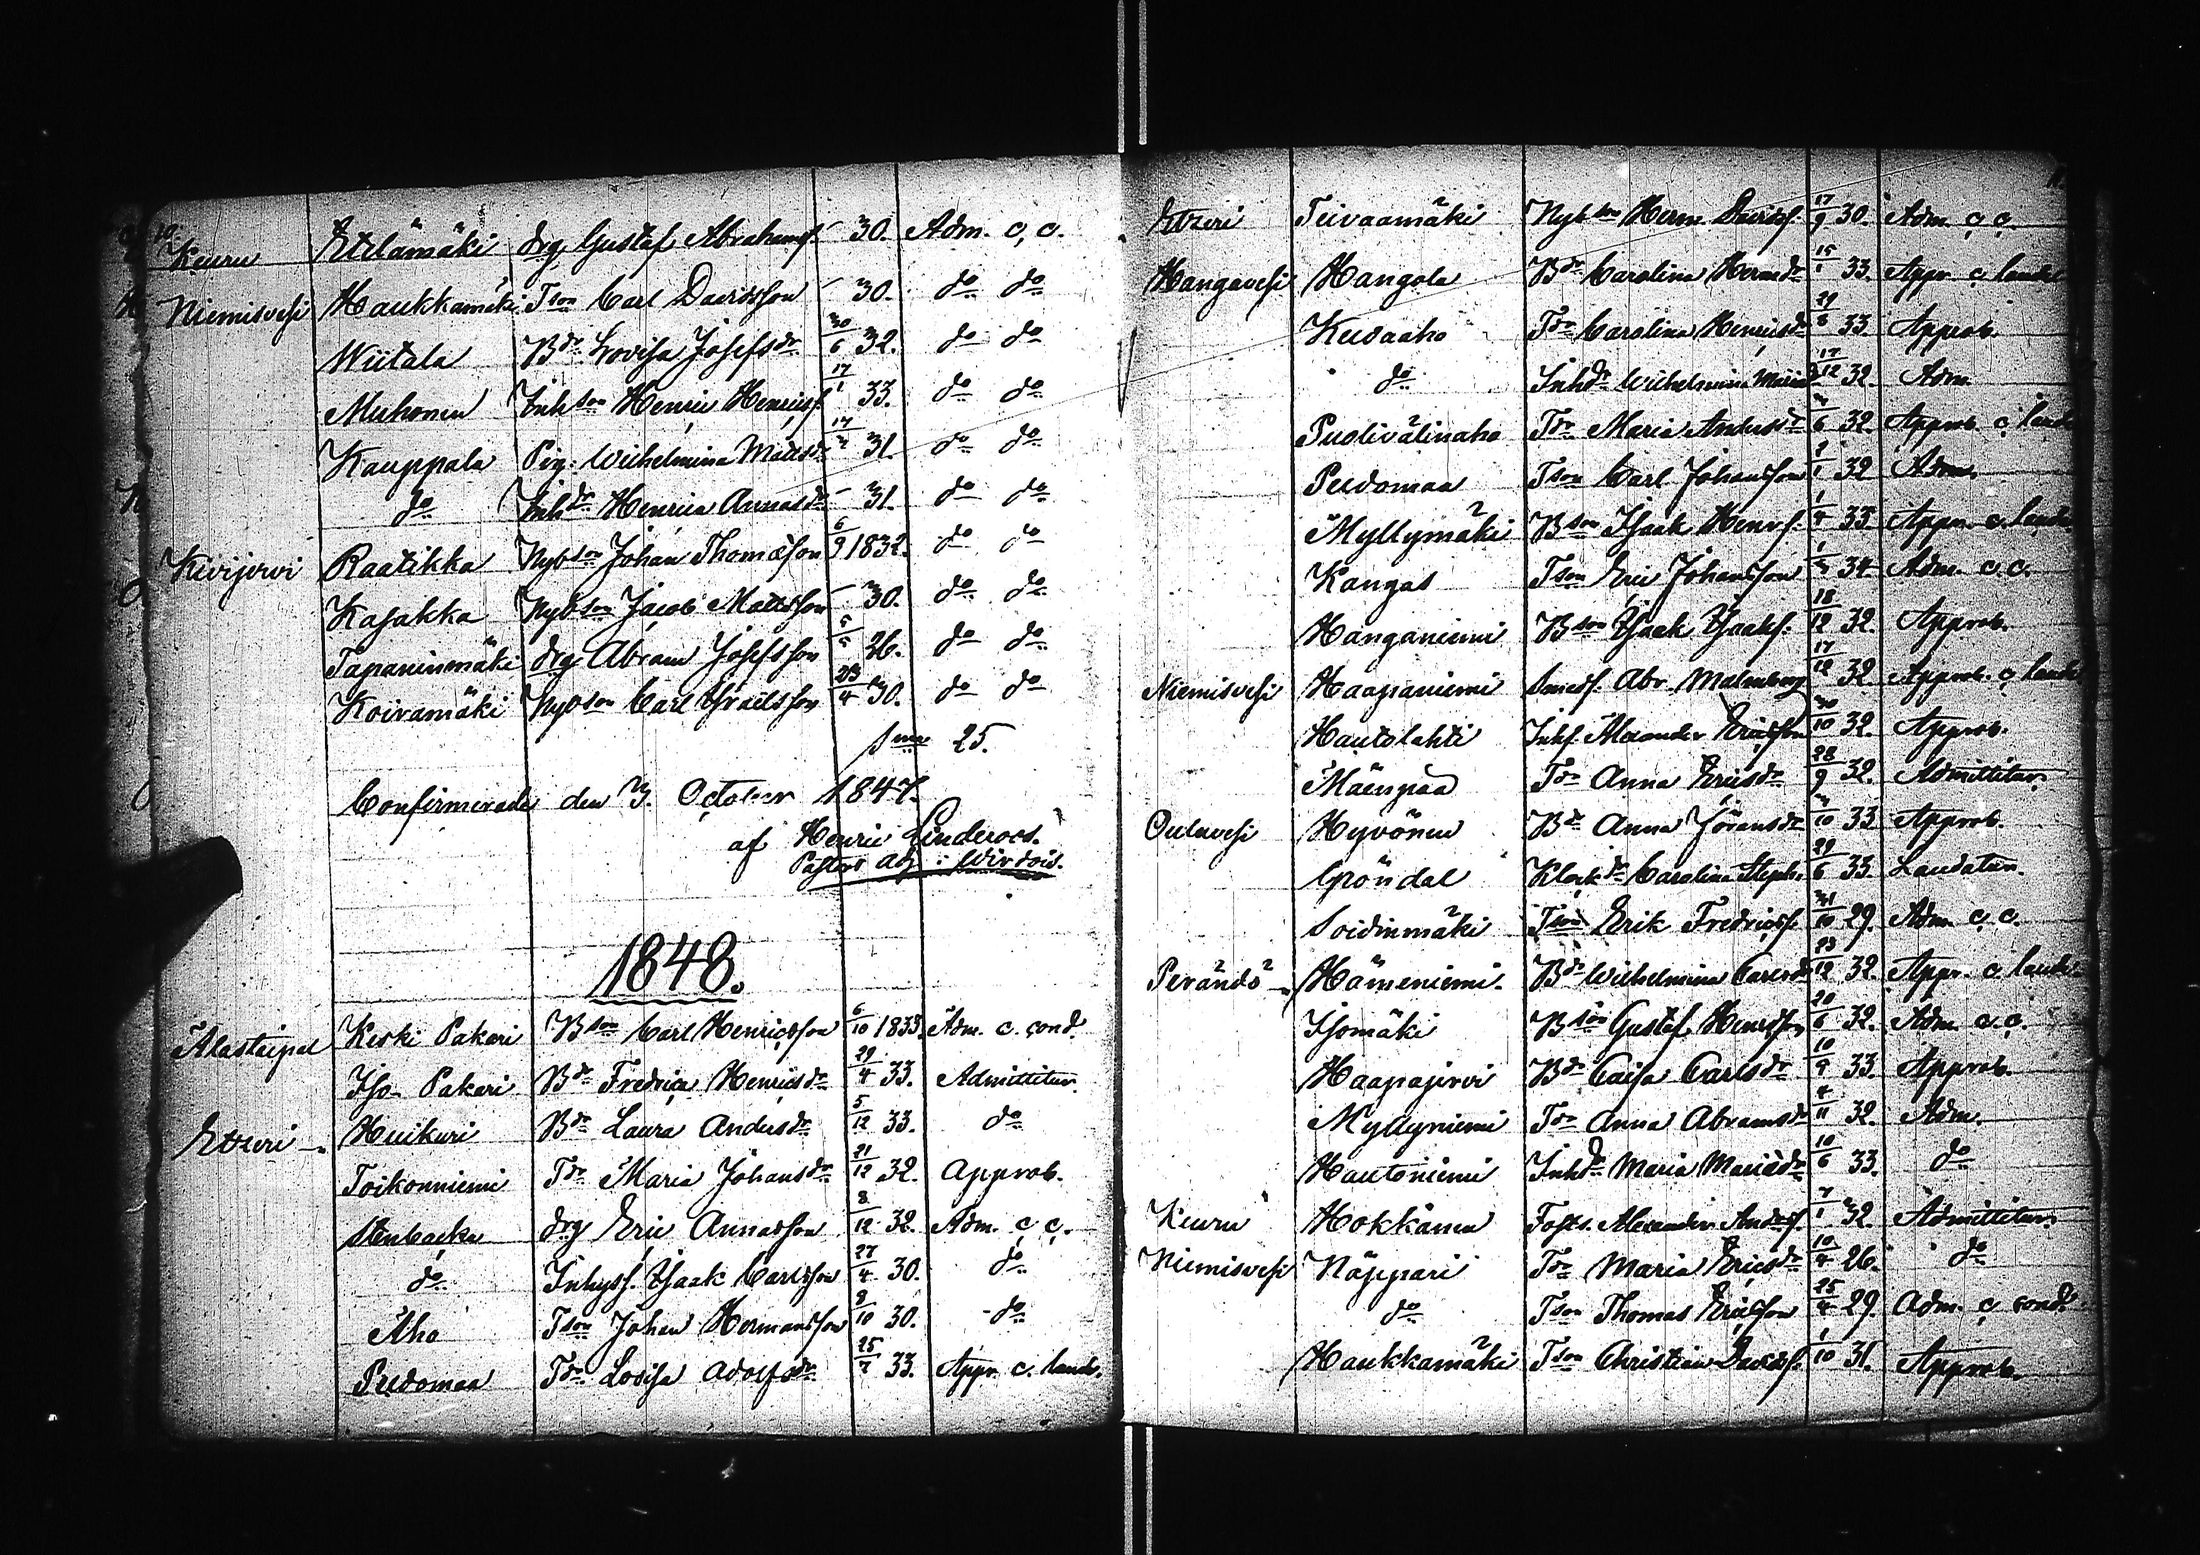 10.
Keuru Etelämäki drg Gustaf Abrahamsf. – 30. Adm. c. c.
Niemisvesi Haukkamäki Tson Carl Davidsson – 30. do do
Wiitala Bdr Lovisa Josefsdr 30/6 32. do do
Muhonen Inhson Henric Henricsf. 17/1 33. do do
Kauppala Pig. Wilhelmina Mattsdr 31. do do
do Inhdr Henrica Annasdr – 31. do do
Kivijervi Raatikka Nybson Johan Thomasson 6/9 1832. do do
Kasakka Nybson Jacob Mattsson – 30. do do
Tapaninmäki drg Abram Josefsson 26. do do
Koivamäki Nybson Carl Israelsson 23/4 30. do do
Sma 25.
Confirmerade den 3. October 1847.
af Henric Linderoos.
Pastors adj. i Wirdois.
1848.
Alasteipel Keski Pakari Bson Carl Henricsson 6/10 1833. Adm. c. cond.
Iso Pakari Bdr Fredrica Henricsdr 29/4 33. Admittitur.
Etzeri Huikuri Bdr Laura Andersdr 5/12 33. do
Toikonniemi Tdr Maria Johansdr 21/12 32. Approb.
Stenbacka drg Eric Annasson 8/12 32. Adm. c. c.
do Inhysf. Isaak Carlsson 27/4 30. do
Aho Tson Johan Hermansson 8/10 30. do
Peldomaa Tdr Lovisa Adolfsdr 25/7 33. Appr. c. laude.
Etzeri Teivaamäki Nybson Herm. Davidsf. 17/9 30. Adm. c. c.
Hangavesi Hangola Bdr Carolina Hermsdr 15/1 33. Appr. c. laude
Keisaaho Tdr Carolina Henricsdr 33. Approb.
do Inhdr Wilhelmina 17/12 32. Adm.
Puolivälinaho Tdr Maria Andersdr 32 Approb. c. laude
Peldomaa Tson Carl Johansson 1/1 32 Adm.
Myllymäki Bson Isaak Henrsf. 1/4 33 Appr. c. laude
Kangas Tson Eric Johansson 34. Adm. c. c.
Hanganiemi Bson Isaak Isaksf. 18/12 32. Approb.
Niemisvesi Haapaniemi Smedsf. Abr. Malmberg 17/12 32 Approb. c. laude
Hautolahti Inhsf. Alexander Ericsson 30/10 32. Approb.
Mäenpää Tdr Anna Ericsdr 28/9 32. Admittitur.
Ouluvesi Hyvönen Bdr Anna Göransdr 3/10 33 Approb.
Gröndal Klockdr Carolina Steph. 29/6 33 Laudatur.
Soidinmäki Tson Erik Fredricsf. 31/10 29. Adm. c. c.
Perändö Hämeniemi Bdr Wilhelmina Carlsdr 23/12 32. Appr. c. laude
Isomäki Bson Gustaf Henricsson 20/6 32. Adm. c. c.
Haapajervi Bdr Caisa Carlsdr 10/9 33. Approb.
Myllyniemi Tdr Anna Abramsdr 4/11 32. Adm.
Hautoniemi Inhdr Maria Mariasdr 10/6 33. do
Keuru Hokkänen Fosts. Alexander Andersf. 7/1 32. Admittitur.
Niemisvesi Näppäri Tdr Maria Ericsdr 10/4 26. do
do Tson Thomas Ericsson 25/4 29. Adm. c. cond.
Haukkamäki Tson Christian Davidsf. 1/10 31. Approb.